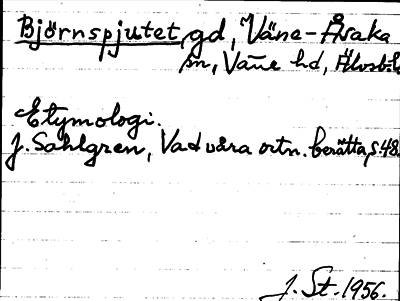 Björnspjutet, gd, Väne-Åsaka
sn, Väne hd, Älvsb.l.
Etymologi.
J. Sahlgren, Vad våra ortn. berätta, s. 48.
J. St. 1956.